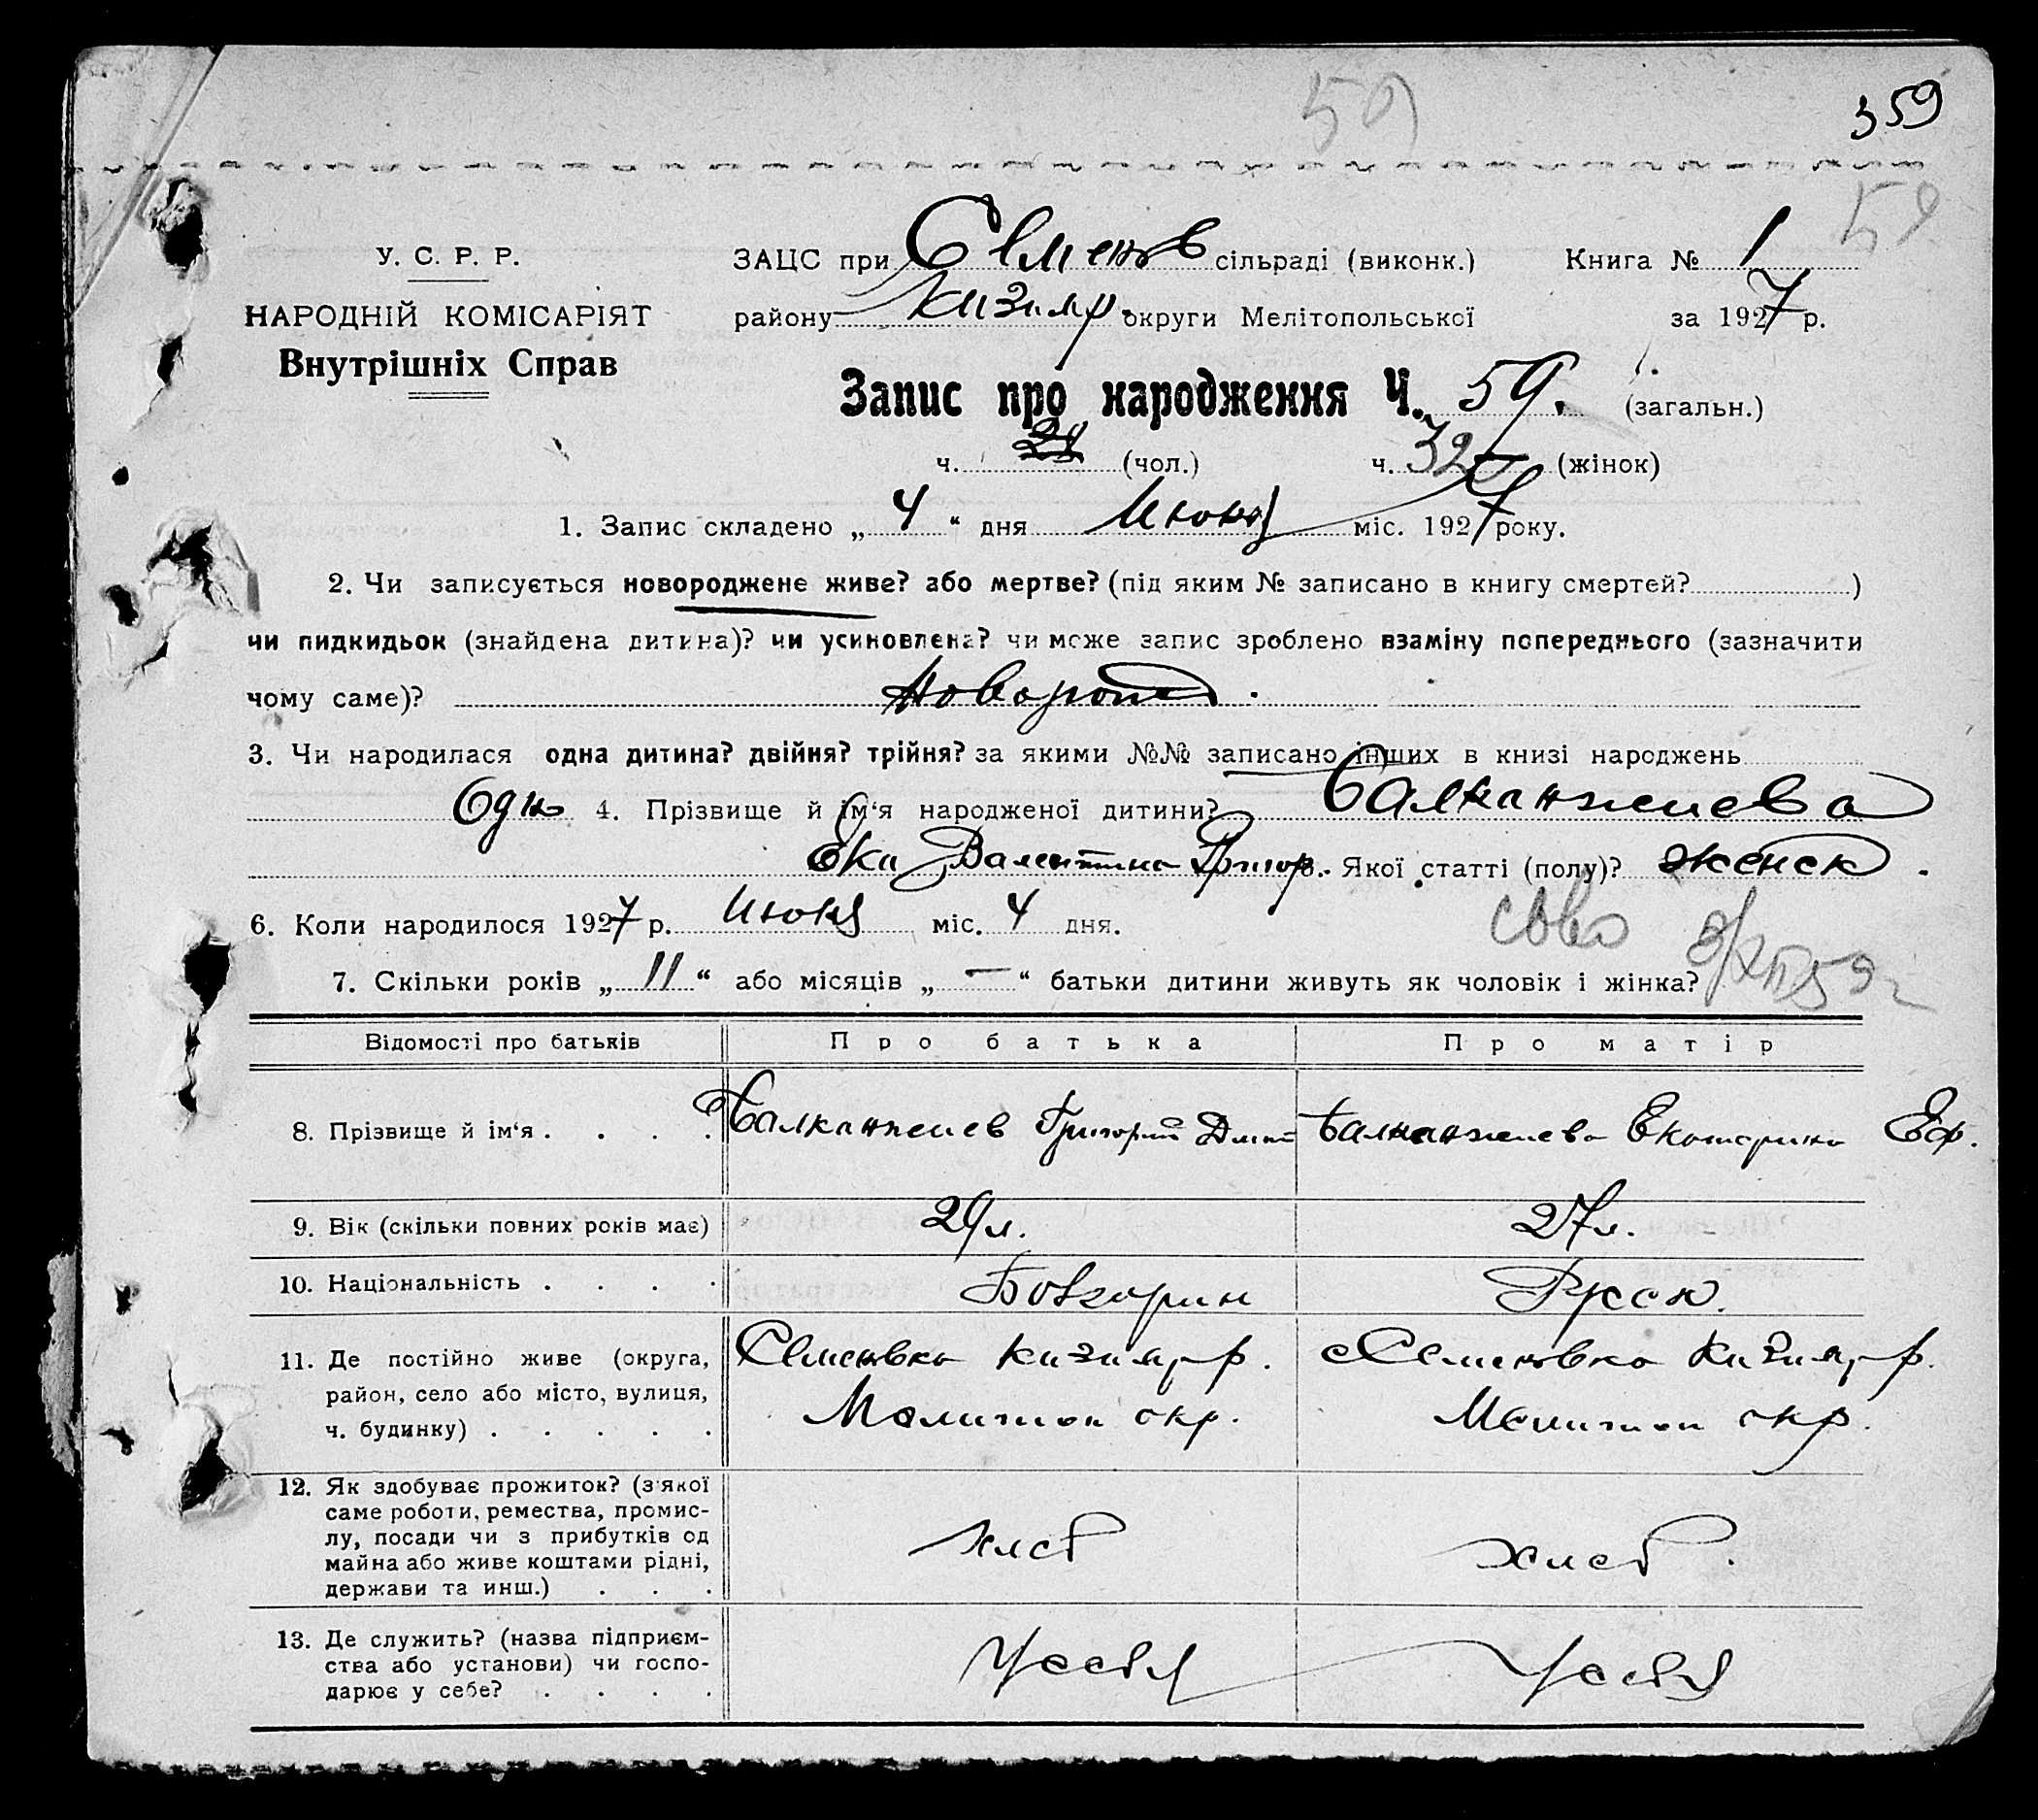 359
59
59
У. С. Р. Р.
НАРОДНІЙ КОМІСАРІЯТ
Внутрішніх Справ
ЗАЦС при Семенов сільраді (виконк.) Книга № 1
району Кизияр. округи Мелітопольської за 1927 р.
Запис про народження Ч. 59. (загальн.)
ч. (чол.) ч. 32 (жінок)
1. Запис складено „ 4 “ дня Июня міс. 1927 року.
2. Чи записується новороджене живе? або мертве? (під яким № записано в книгу смертей? )
чи пидкидьок (знайдена дитина)? чи усиновлена? чи може запис зроблено взаміну попереднього (зазначити
чому саме)?
3. Чи народилася одна дитина? двійня? трійня? за якими №№ записано інших в книзі народжень
Одна 4. Прізвище й ім‘я народженої дитини? Балканжиева
Валентина Григор. Якої статті (полу)? женск.
6. Коли народилося 1927 р. Июня міс. 4 дня.
7. Скільки років „ 11 “ або місяців „ — “ батьки дитини живуть як чоловік і жінка?
Відомості про батьків Про батька Про матір
8. Прізвище й ім‘я . . . . Балканжиев Григорий Дмит Балканжиева Екатерина Еф.
9. Вік (скільки повних років має) 29 л. 27 л.
10. Національність . . . . Болгарин Русск.
11. Де постійно живе (округа,
район, село або місто, вулиця,
ч. будинку) . . . . .
Семеновка Кизияр р.
Мелитоп окр.
Семеновка Кизияр р.
Мелитоп окр.
12. Як здобуває прожиток? (з якої
саме роботи, ремества, промис-
лу, посади чи з прибутків од
майна або живе коштами рідні,
держави та инш.) . . .
Хлеб
Хлеб.
13. Де служить? (назва підприєм-
ства або установи) чи госпо-
дарює у себе? . . . .
У себя
У себя